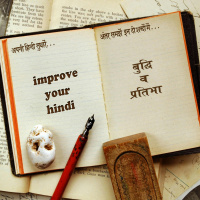 अपनी हिंदी सुधारें...
improve
your
hindi
अंतर समझें इन शब्दों में...
बुद्धि
व
प्रतिभा